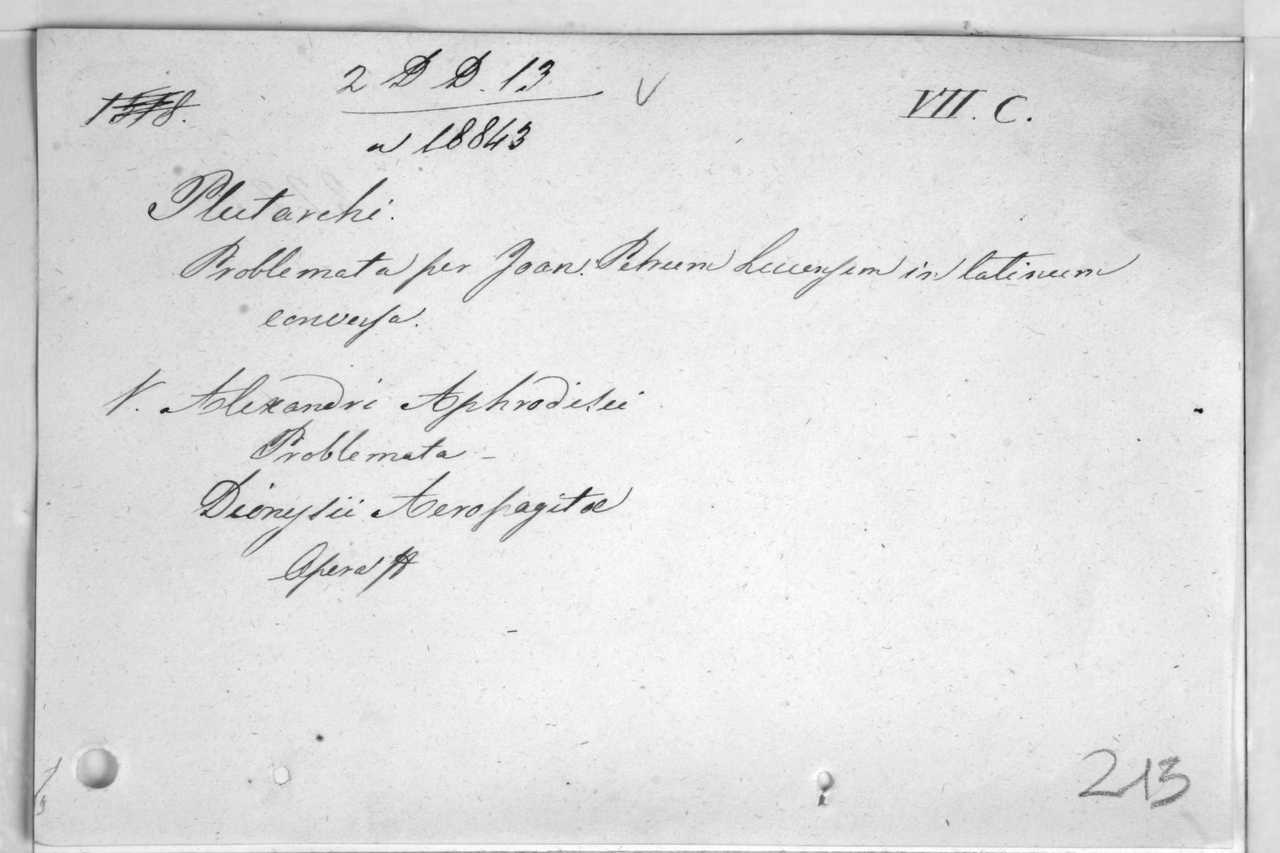 2 D D. 13 V
VII. C.
a 18843
Plutarchi.
Problemata per Joan. Petrum Lucensem in latinum
conversa.
V. Alexandri Aphrodisei
Problemata -
Dionysii Aeropagitae
Opera
213